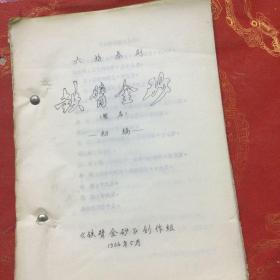 六场京剧
铁臂金砂
(暂名)
—初稿—
《铁臂金砂》创作组
1966年5月